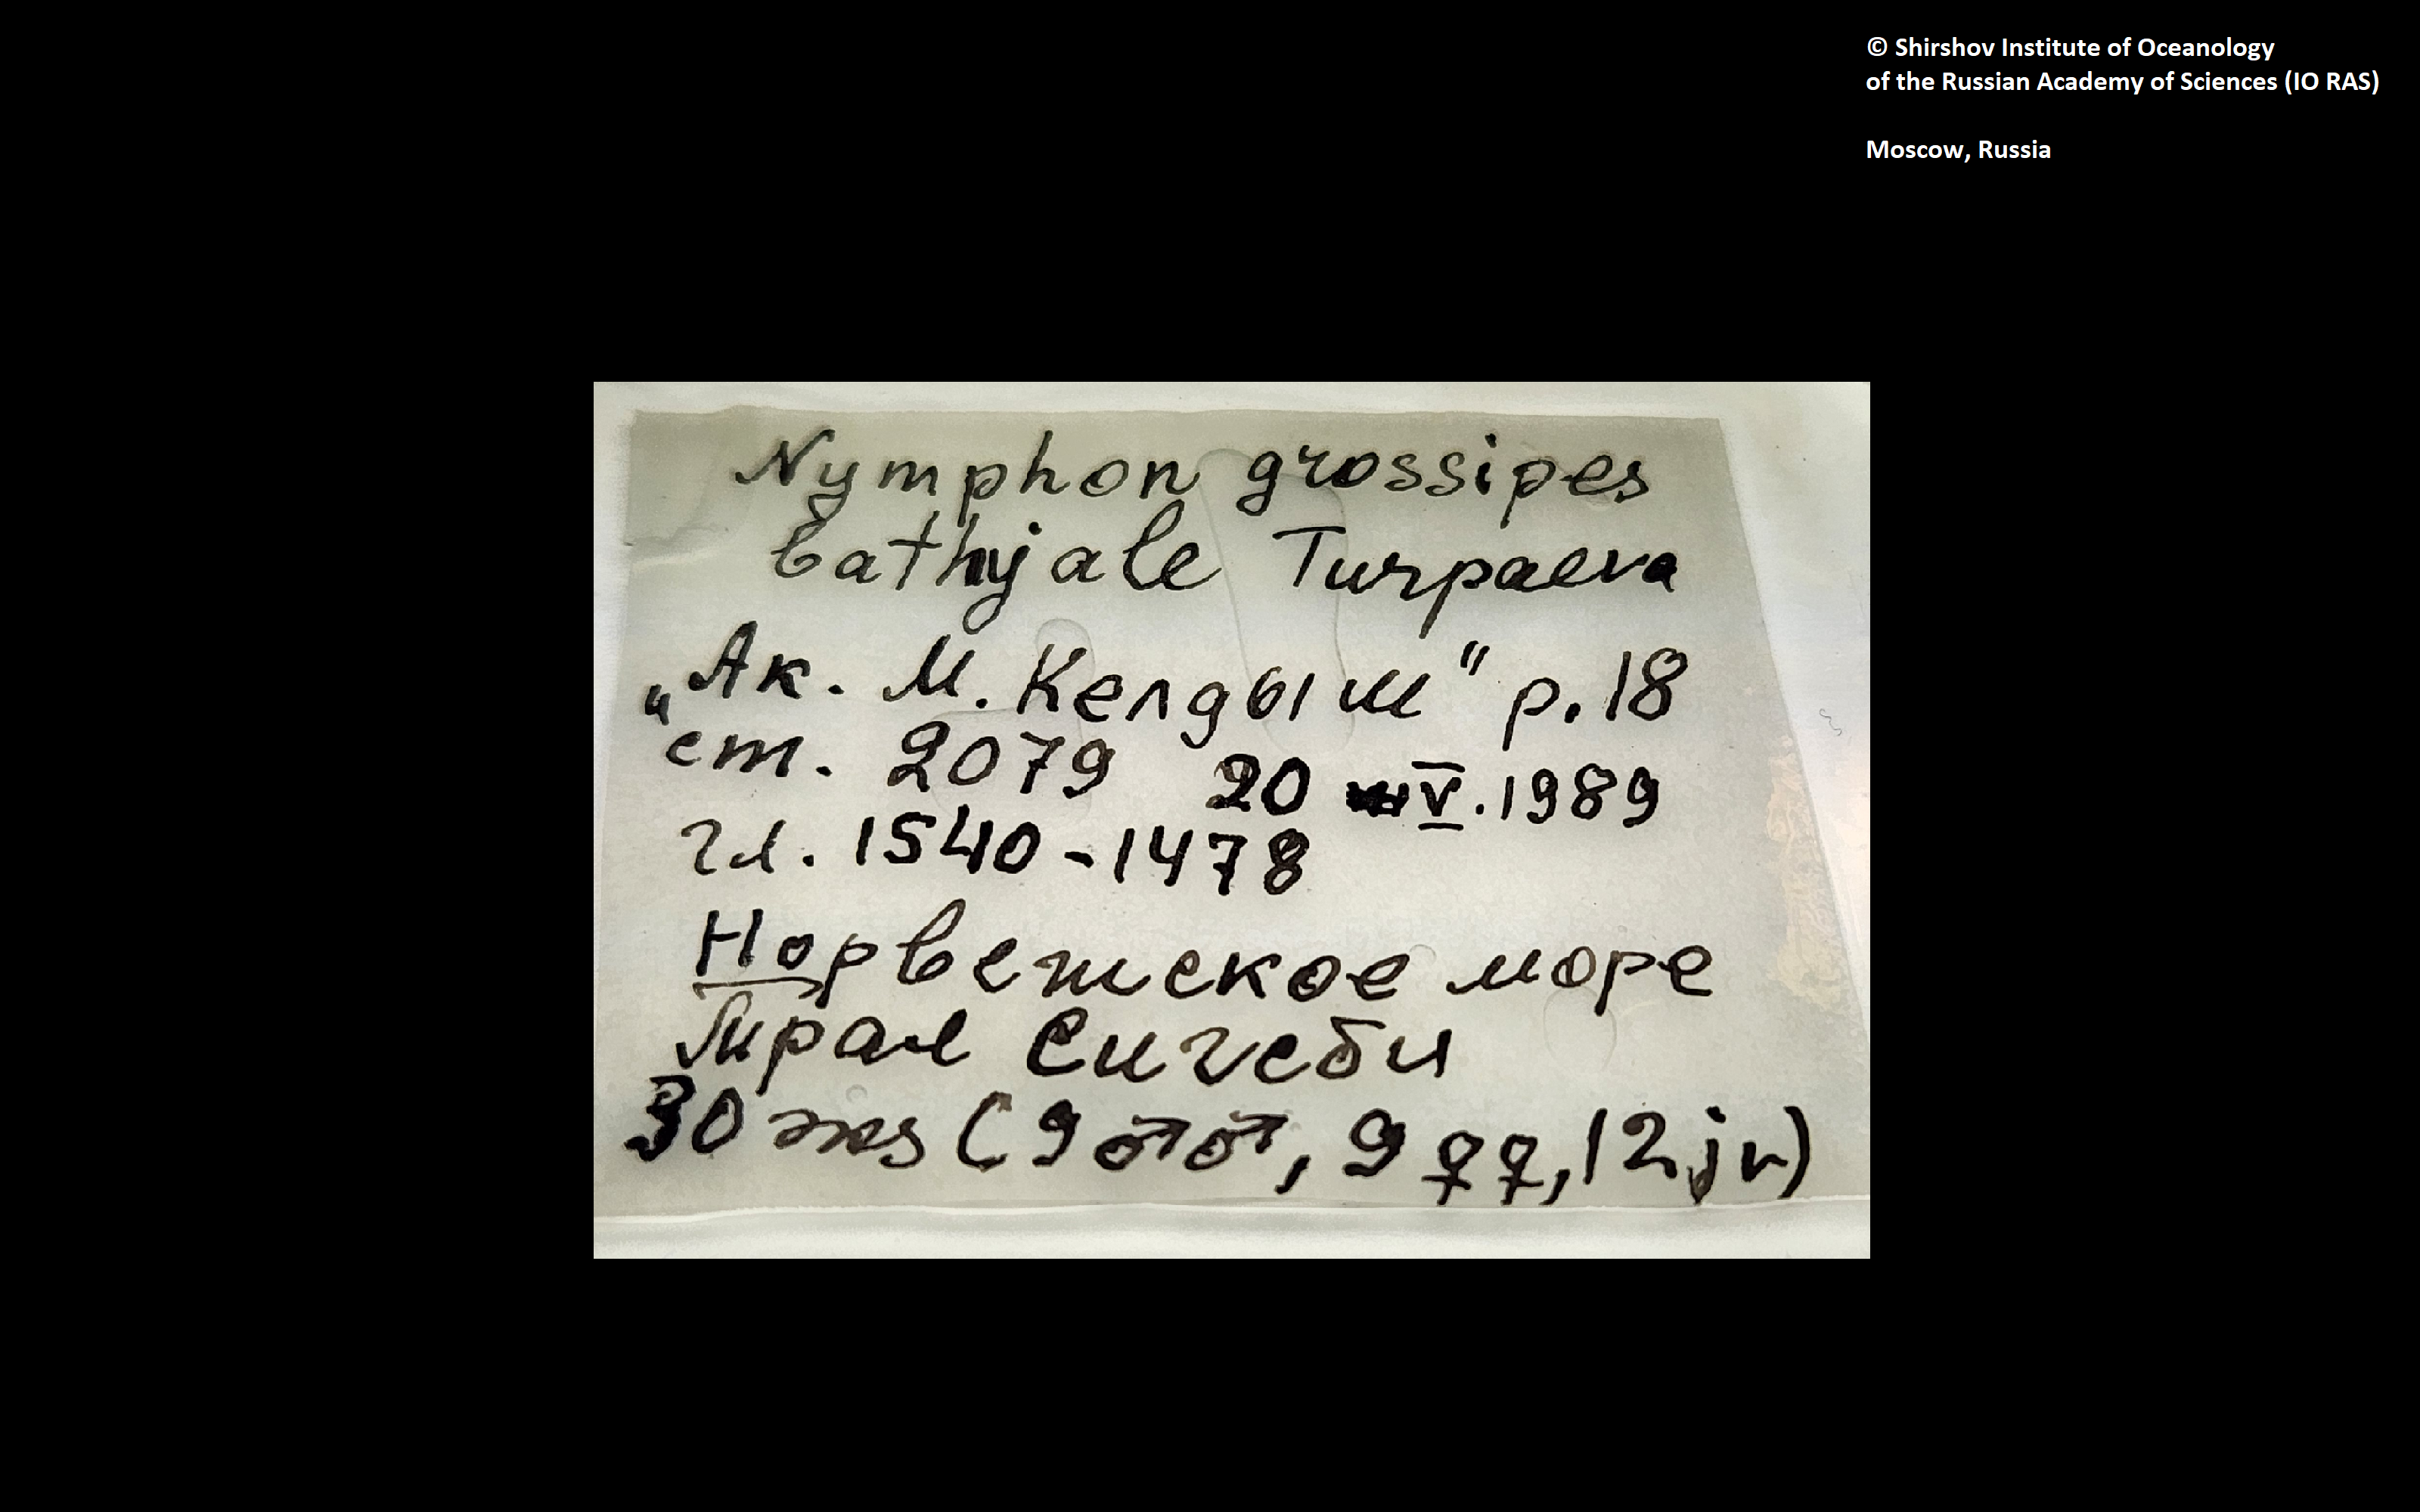 © Shirshov Institute of Oceanology
of the Russian Academy of Sciences (IO RAS)
Moscow, Russia
Nymphon grossipes
bathyale Turpaeva
„Ак. М. Келдыш" р. 18
ст. 2079 20 V. 1989
гл. 1540-1478
Норвежское море
Трал Сигсби
30 экз (9 ♂♂, 9 ♀♀, 12 jv)